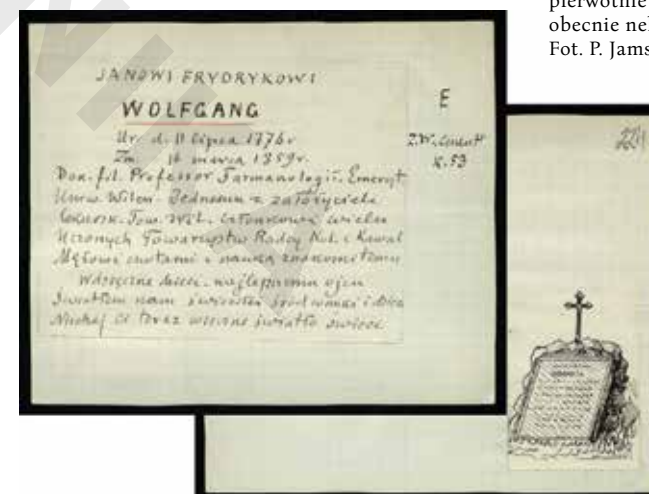 pierwotnie
obecnie nek
Fot. P. Jams
JANOWI FRYDRYKOWI
WOLFGANG
Ur. d. 11 lipca 1776 r
Zm. 16 marca 1859 r.
Dok. fil. Professor Farmakologii. Emeryt
Uniw. Wilen. Jednemu z założycieli
Tow. Wil. członkowi wielu
Uczonych Towarzystw Radcy Kol. i Kawal
Mężowi cnotami i nauką znakomitemu
Wdzięczne dzieci najlepszemu ojcu
Światłem nam świeciłeś śród i
Niechaj Ci teraz wieczne światło świeci
E
Z.W.
K. 53